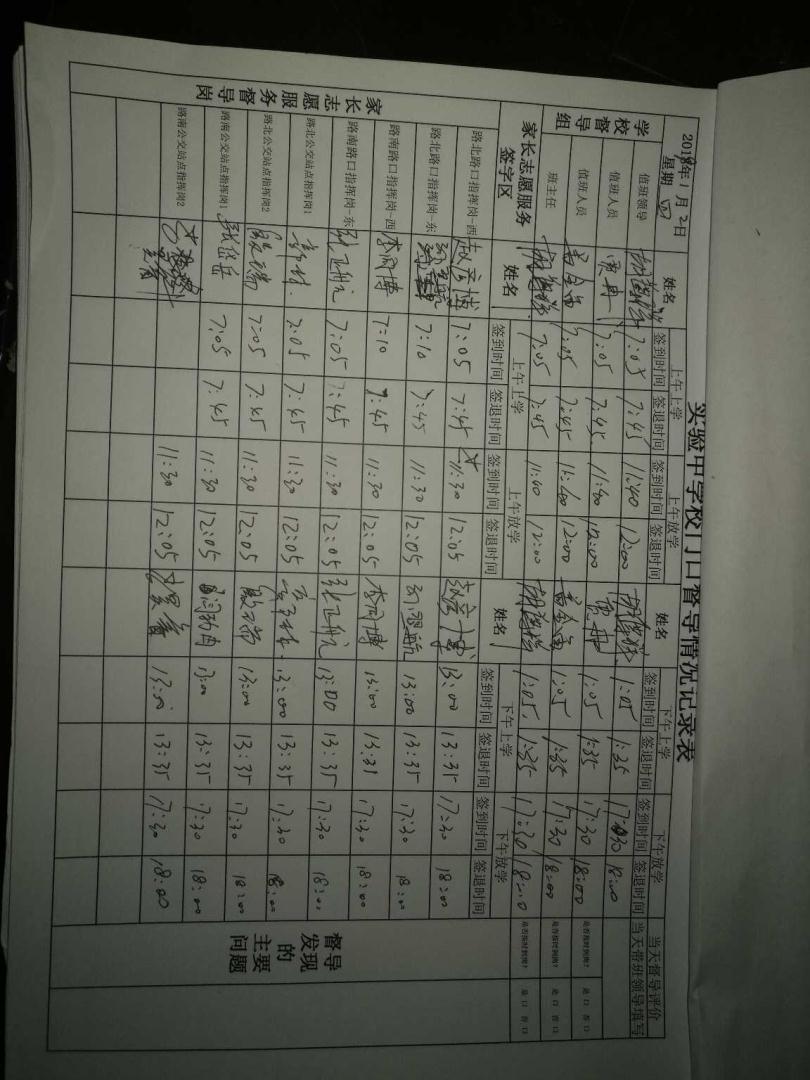 实验中学校门口督导情况记录表
2018年1月2日
星期四
姓名 上午上学 上午放学 姓名 下午上学 下午放学 当天督导评价
签到时间 签退时间 签到时间 签退时间 签到时间 签退时间 签到时间 签退时间 当天带班领导填写
学校督导组
值班领导 7:05 7:45 11:40 12:00 1:05 1:35 17:30 18:00
值班人员 7:05 7:45 11:40 12:00 1:05 1:35 17:30 18:00 是否按时到岗? 是口 否口
值班人员 7:05 7:45 11:40 12:00 1:05 1:35 17:30 18:00 是否按时到岗? 是口 否口
班主任 7:05 7:45 11:40 12:00 1:05 1:35 17:30 18:00 是否按时到岗? 是口 否口
家长志愿服务 姓名 上午上学 上午放学 姓名 下午上学 下午放学
签字区 签到时间 签退时间 签到时间 签退时间 签到时间 签退时间 签到时间 签退时间
家长志愿服务督导岗
路北路口指挥岗-西 赵彦博 7:05 7:45 11:30 12:05 赵彦博 13:00 13:35 17:30 18:00
路北路口指挥岗-东 7:10 7:45 11:30 12:05 13:00 13:35 17:30 18:00
路南路口指挥岗-西 李同博 7:10 7:45 11:30 12:05 李同博 13:00 13:35 17:30 18:00
路南路口指挥岗-东 张正航 7:05 7:45 11:30 12:05 张正航 13:00 13:35 17:30 18:00
路北公交站点指挥岗1 7:05 7:45 11:30 12:05 13:00 13:35 17:30 18:00
路北公交站点指挥岗2 7:05 7:45 11:30 12:05 13:00 13:35 17:30 18:00
路南公交站点指挥岗1 张岱岳 7:05 7:45 11:30 12:05 13:00 13:35 17:30 18:00
路南公交站点指挥岗2 11:30 12:05 13:00 13:35 17:30 18:00
督导发现的主要问题